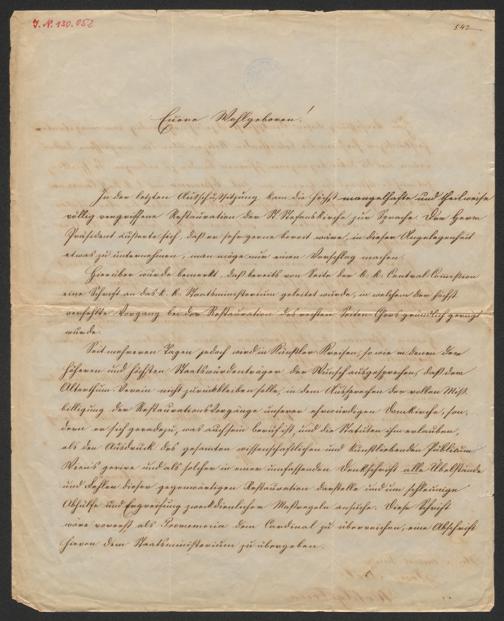 J. N. 120.052
542
Euere Wohlgeboren!
In der letzten Ausschußsitzung kam die höchst mangelhafte und theilweise
völlig vergriffene Restauration der St Stefanskirche zur Sprache. Der Herr
Präsident äußerte sich, daß er sehr gerne bereit wäre, in dieser Angelegenheit
etwas zu unternehmen, man möge nur einen Vorschlag machen.
Hierüber wurde bemerkt, daß bereits von Seite der k. k. Central Comission
eine Schrift an das k. k. Staatsministerium geleitet wurde, in welchem der höchst
verfehlte Vorgang bei der Restauration des rechten Seiten Chors gründlich gerügt
wurde.
Seit mehreren Tagen jedoch wird in Künstler Kreisen, so wie in denen der
höheren und höchsten Staatswürdenträger der Wunsch ausgesprochen, daß der
Alterthum Verein nicht zurückbleiben solle, in dem Aussprechen der vollen Miß-
billigung der Restaurations Vorgänge unserer ehrwürdigen Domkirche, son-
dern er sich geradezu, was auch sein Beruf ist und die Statuten ihm erlauben,
als den Ausdruck des gesamten wissenschaftlichen und kunstliebenden Publikum
Wiens gerire und als solcher in einer umfassenden Denkschrift alle Übelstände
und Fehler dieser gegenwärtigen Restauration darstelle und um schleunige
Abhülfe und Ergreifung zweckdienlicher Maßregeln ansuche. Diese Schrift
wäre vorerst als Promemoria dem Cardinal zu überreichen, eine Abschrift
hievon dem Staatsministerium zu übergeben.